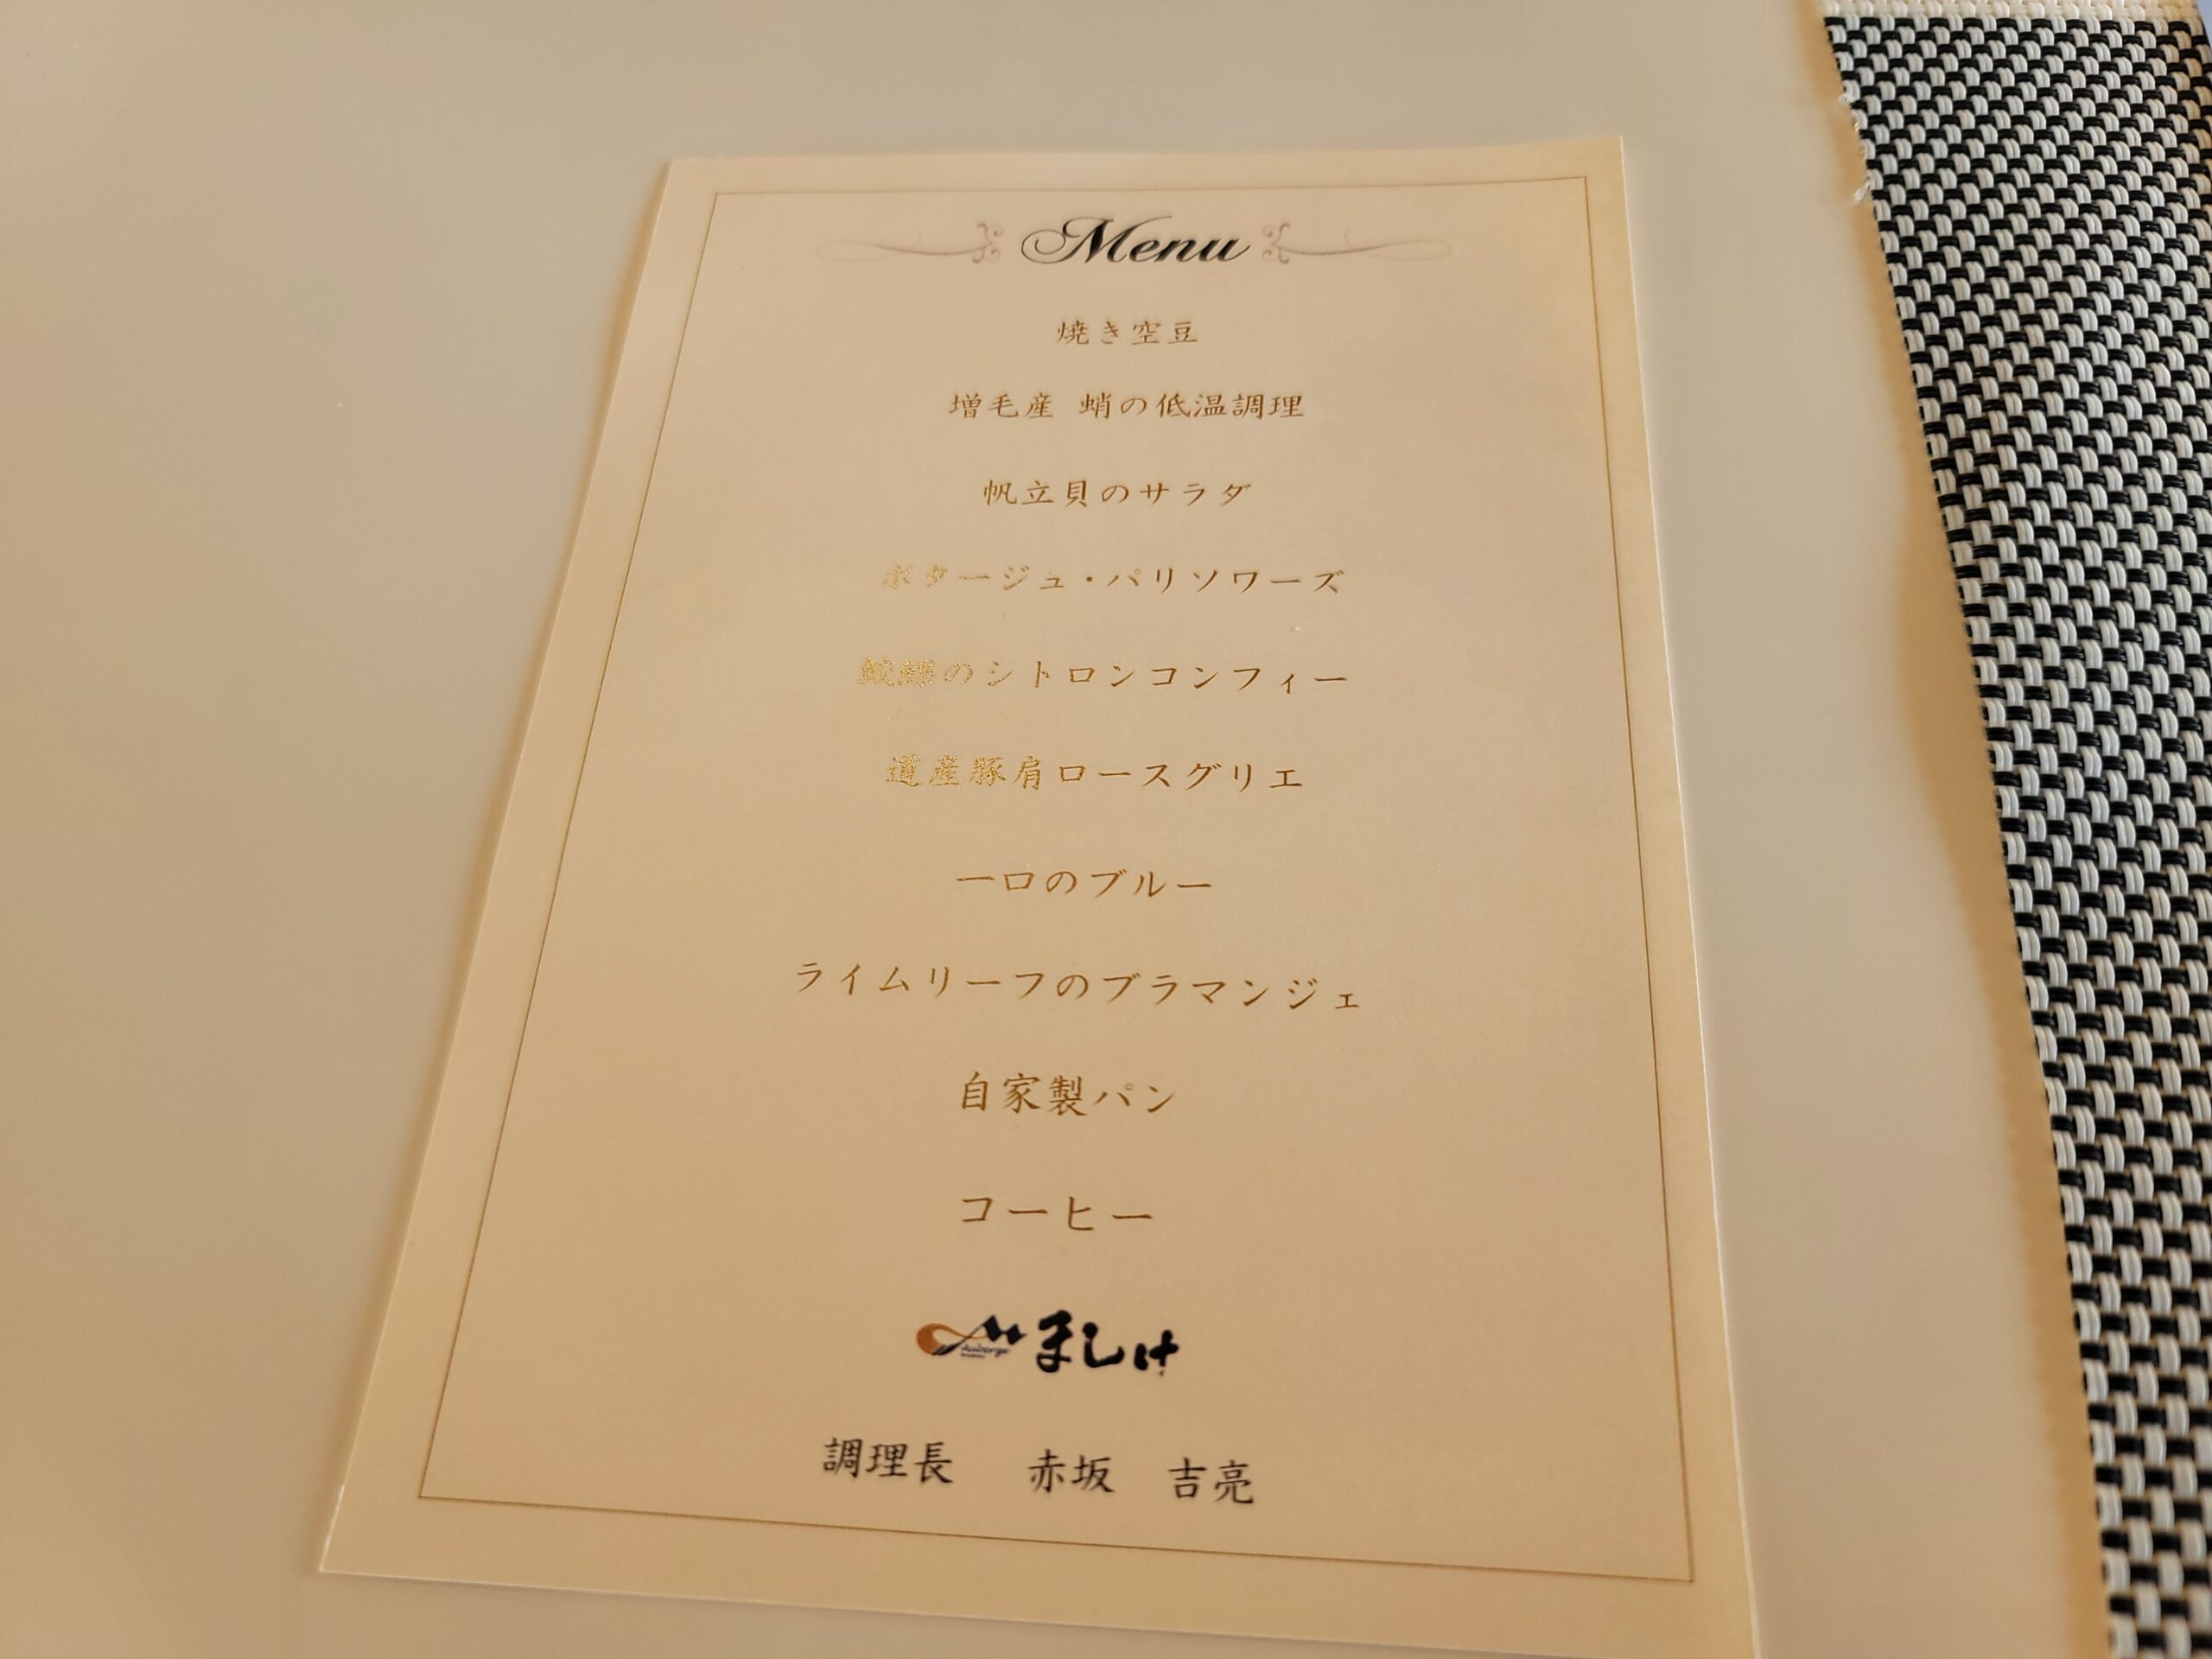 Menu
焼き空豆
増毛産 蛸の低温調理
帆立貝のサラダ
ポタージュ・パリソワーズ
鮟鱇のシトロンコンフィー
道産豚肩ロースグリエ
一口のブルー
ライムリーフのブラマンジェ
自家製パン
コーヒー
ましけ
調理長 赤坂 吉亮